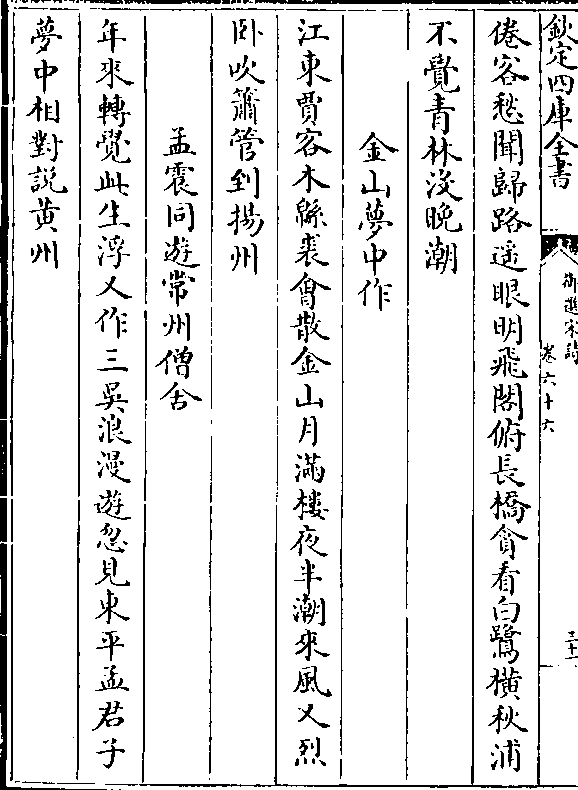 欽定四庫全書
御選宋詩
卷六十六
三十一
倦客愁聞歸路遥眼明飛閣俯長橋貪看白鷺橫秋浦
不覺青林沒晚潮
金山夢中作
江東賈客木緜裘㑹散金山月滿樓夜半潮來風又烈
卧吹簫管到揚州
孟震同遊常州僧舍
年來轉覺此生浮又作三吳浪漫遊忽見東平孟君子
夢中相對説黄州